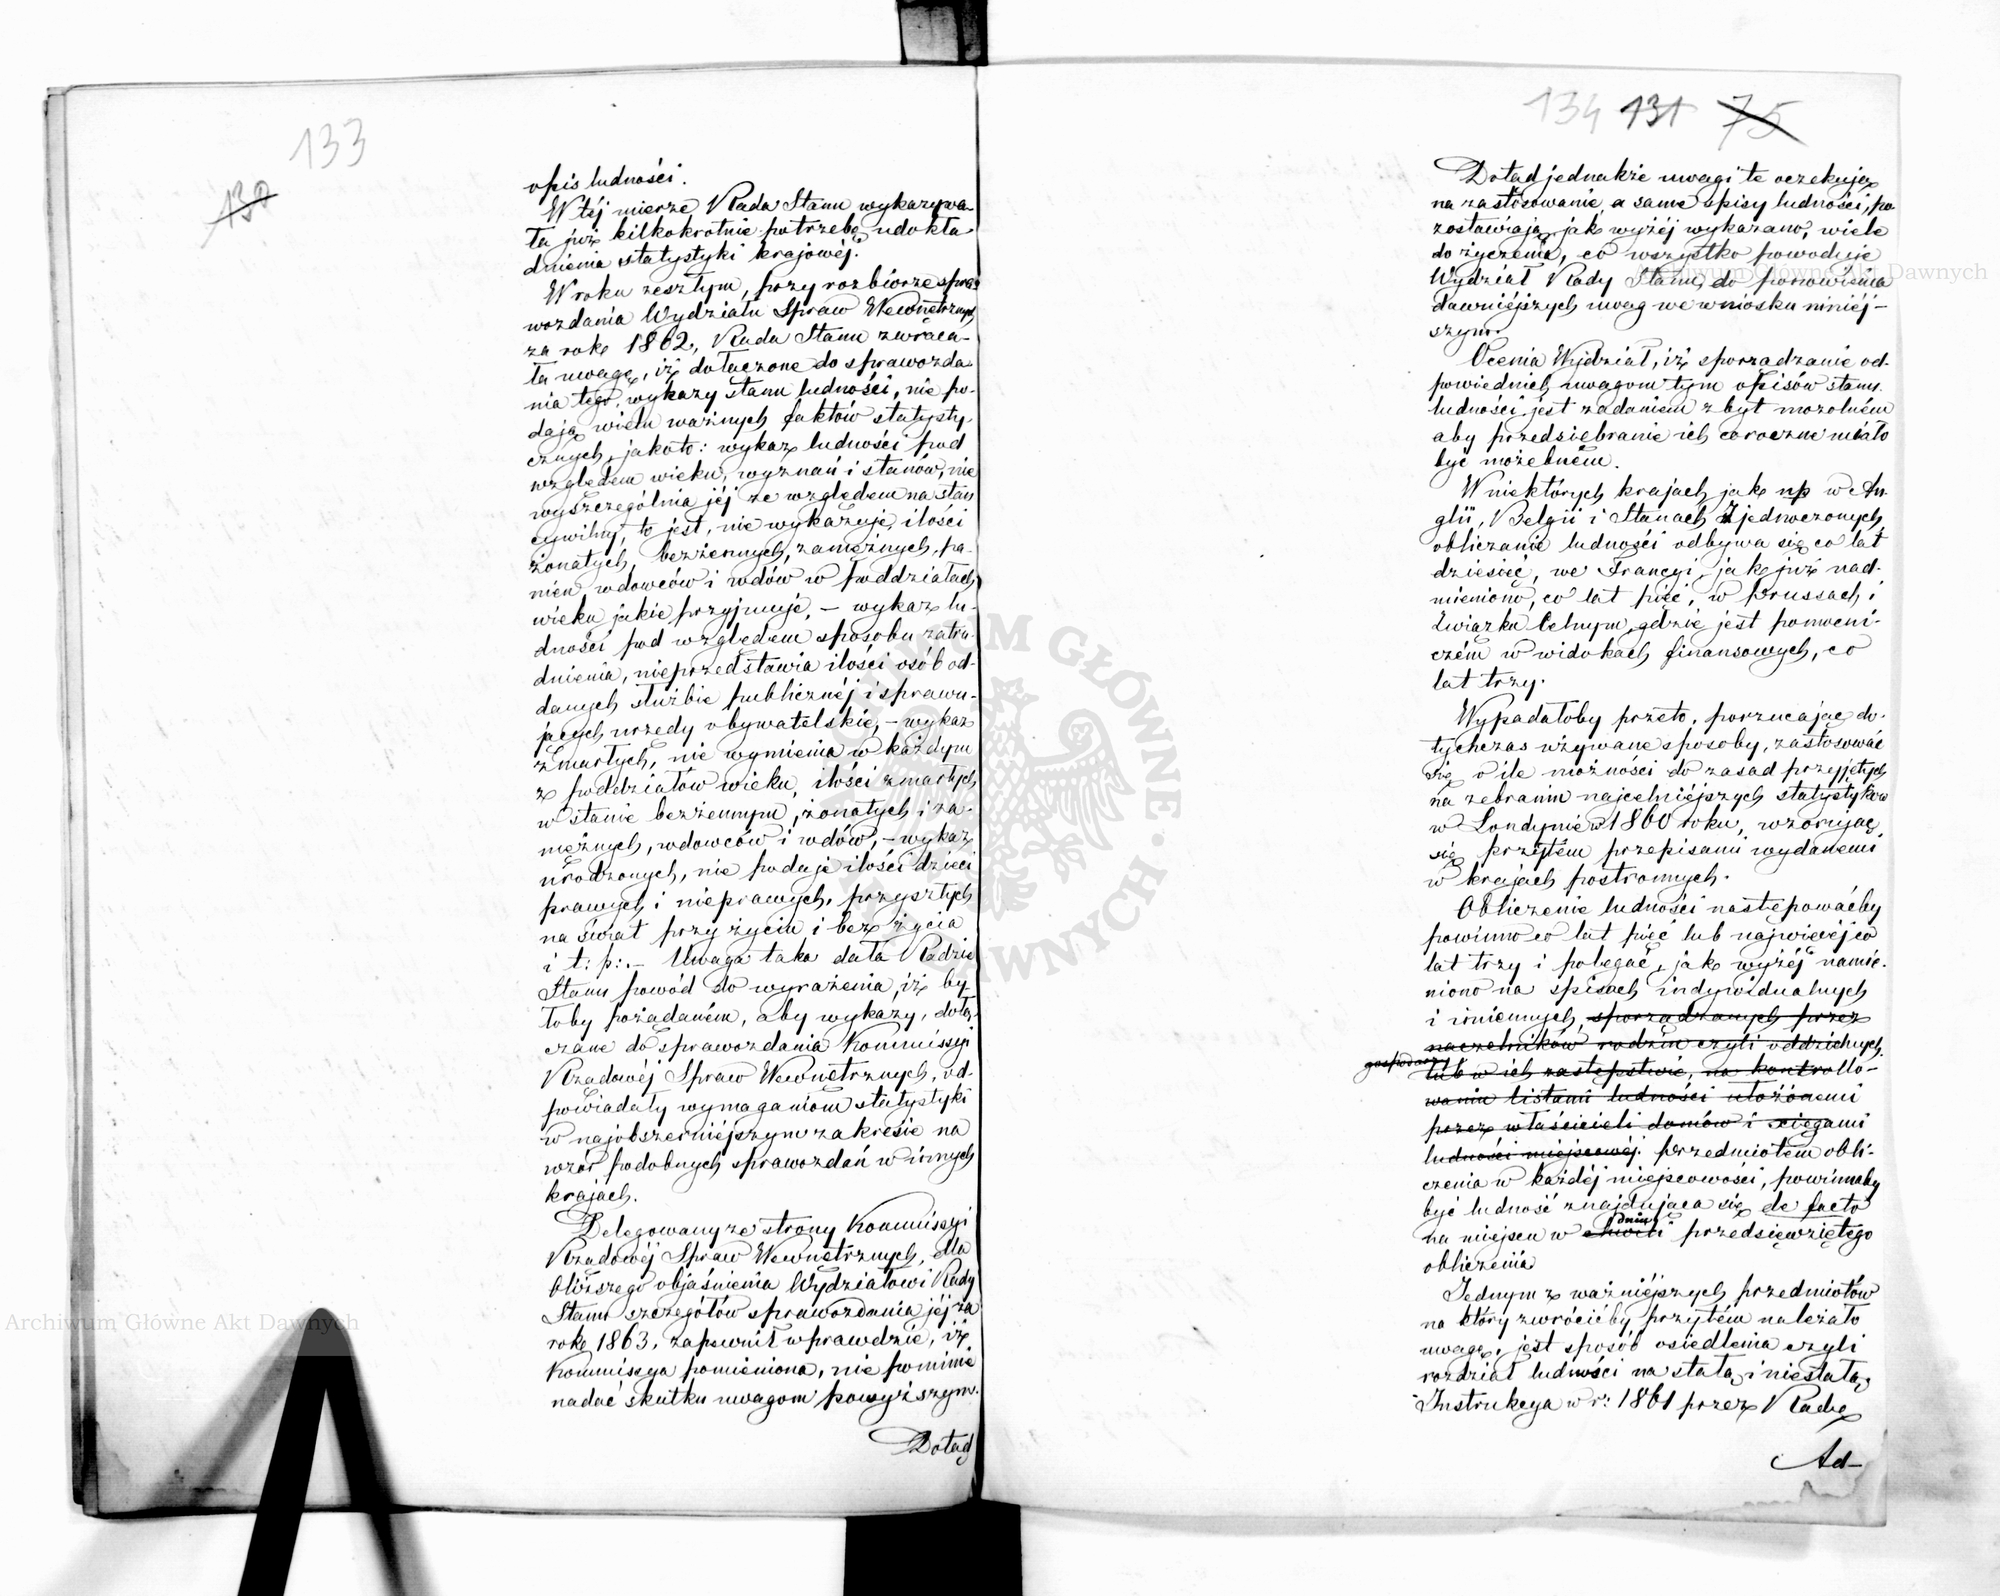 133
130
opis ludności.
W téj mierze Rada Stanu wykazywa-
ła już kilkokrotnie potrzebę udokła-
dnienia statystyki krajowéj.
W roku zeszłym, przy rozbiorze spra-
wozdania Wydziału Spraw Wewnętrznych
za rok 1862, Rada Stanu zwraca-
ła uwagę, iż dołączone do sprawozda-
nia tego wykazy stanu ludności, nie po-
dają wielu ważnych faktów statysty-
cznych, jakoto: wykaz ludności pod
względem wieku, wyznań i stanów, nie
wyszczególnia jéj ze względem na stan
cywilny, to jest, nie wykazuje ilości
żonatych, bezżennych, zamężnych, pa-
nien wdowców i wdów w poddziałach
wieku jakie przyjmuje, – wykaz lu-
dności pod względem sposobu zatru-
dnienia, nieprzedstawia ilości osób od-
danych służbie publicznéj i sprawu-
jących urzędy obywatelskie, – wykaz
zmarłych, nie wymienia w każdym
z poddziałów wieku, ilości zmarłych
w stanie bezżennym, żonatych i za-
mężnych, wdowców i wdów, – wykaz
urodzonych, nie podaje ilości dzieci
prawych i nieprawych, przyszłych
na świat przy życiu i bez życia
i t: p:. – Uwaga taka dała Radzie
Stanu powód do wyrażenia, iż by-
łoby pożądaném, aby wykazy, dołą-
czane do sprawozdania Kommissyi
Rządowéj Spraw Wewnętrznych, od-
powiadały wymaganiom statystyki
w najobszerniejszym zakresie na
wzór podobnych sprawozdań w innych
krajach.
Delegowany ze strony Kommissyi
Rządowéj Spraw Wewnętrznych, dla
bliższego objaśnienia Wydziałowi Rady
Stanu szczegółów sprawozdania jéj za
rok 1863, zapewnił wprawdzie, iż
Kommissya pomieniona, nie pominie
nadać skutku uwagom powyższym.
Dotąd
134 131 75
Dotąd jednakże uwagi te oczekują
na zastosowanie, a same spisy ludności, po-
zostawiają, jak wyżéj wykazano, wiele
do życzenia, co wszystko powoduje
Wydział Rady Stanu, do ponowienia
dawniéjszych uwag we wniosku niniéj-
szym.
Ocenia Wydział, iż sporządzanie od-
powiednich uwagom tym opisów stanu
ludności jest zadaniem zbyt mozolném
aby przedsiębranie ich coroczne miało
być możebném.
W niektórych krajach jak np w An-
glii, Belgii i Stanach Zjednoczonych,
obliczanie ludności odbywa się co lat
dziesięć, we Francyi, jak już nad-
mieniono, co lat pięć, w Prussach i
Związku Celnym, gdzie jest pomocni-
czém w widokach finansowych, co
lat trzy.
Wypadałoby przeto, porzucając do-
tychczas używane sposoby, zastosować
się o ile możności do zasad przyjętych
na zebraniu najcelniéjszych statystyków
w Londynie w 1860 roku, wzorując
się przytém przepisami wydanemi
w krajach postronnych.
Obliczenie ludności następowaćby
powinno co lat pięć lub najwięcéj co
lat trzy i polegać, jak wyżéj namie-
niono na spisach indywidualnych
i imiennych, sporządzanych przez
naczelników rodzin czyli oddzielnych
gospodarzy
lub w ich zastępstwie, na kontrollo-
waniu listami ludności ułożonemi
przez właścicieli domów i xięgami
ludności miejscowéj. Przedmiotem obli-
czenia w każdéj miejscowości, powinnaby
być ludność znajdująca się de facto
na miejscu w chwili przedsięwziętego
dniu
obliczenia
Jednym z ważniéjszych przedmiotów
na który zwrócićby przytém należało
uwagę, jest sposób osiedlenia czyli
rozdział ludności na stałą i niestałą.
Instrukcya w r: 1861 przez Radę
Ad-
Archiwum Główne Akt Dawnych
Archiwum Główne Akt Dawnych
ARCHIWUM GŁÓWNE AKT DAWNYCH